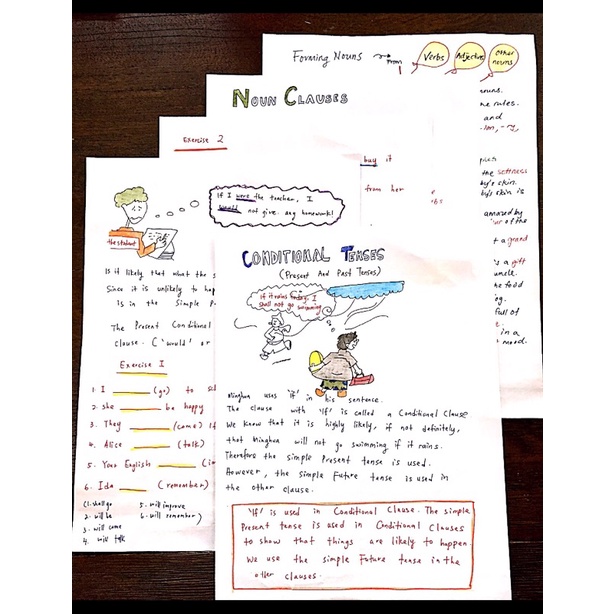 Forming Nouns
from
Verbs
Adjectives
other
nouns
NOUN CLAUSES
Exercise 2
buy it
from her
nouns.
rules.
and
the softness
by's skin.
by's skin is
amazed by
of the
t a grand
is a gift
uncle.
the food
full of
in a
mood.
the student
If I were the teacher, I
would not give any homework!
Is it likely that what the s
Since it is unlikely to hap
is in the Simple P
The Present Conditional
clause. ('would' or
Exercise I
1. I (go) to sch
2. She be happy
3. They (come) if
4. Alice (talk)
5. Your English (im
6. Ida (remember)
(1. shall go
2. will be
3. will come
4. will talk
5. will improve
6. will remember)
CONDITIONAL TENSES
(Present And Past Tenses)
If it rains today, I
shall not go swimming
Minghua uses 'If' in his sentence.
The clause with 'If' is called a Conditional Clause
We know that it is highly likely, if not definitely,
that Minghua will not go swimming if it rains.
Therefore the simple Present tense is used.
However, the simple Future tense is used in
the other clause.
'If' is used in Conditional Clause. The simple
Present tense is used in Conditional Clauses
to show that things are likely to happen.
We use the simple Future tense in the
other clauses.